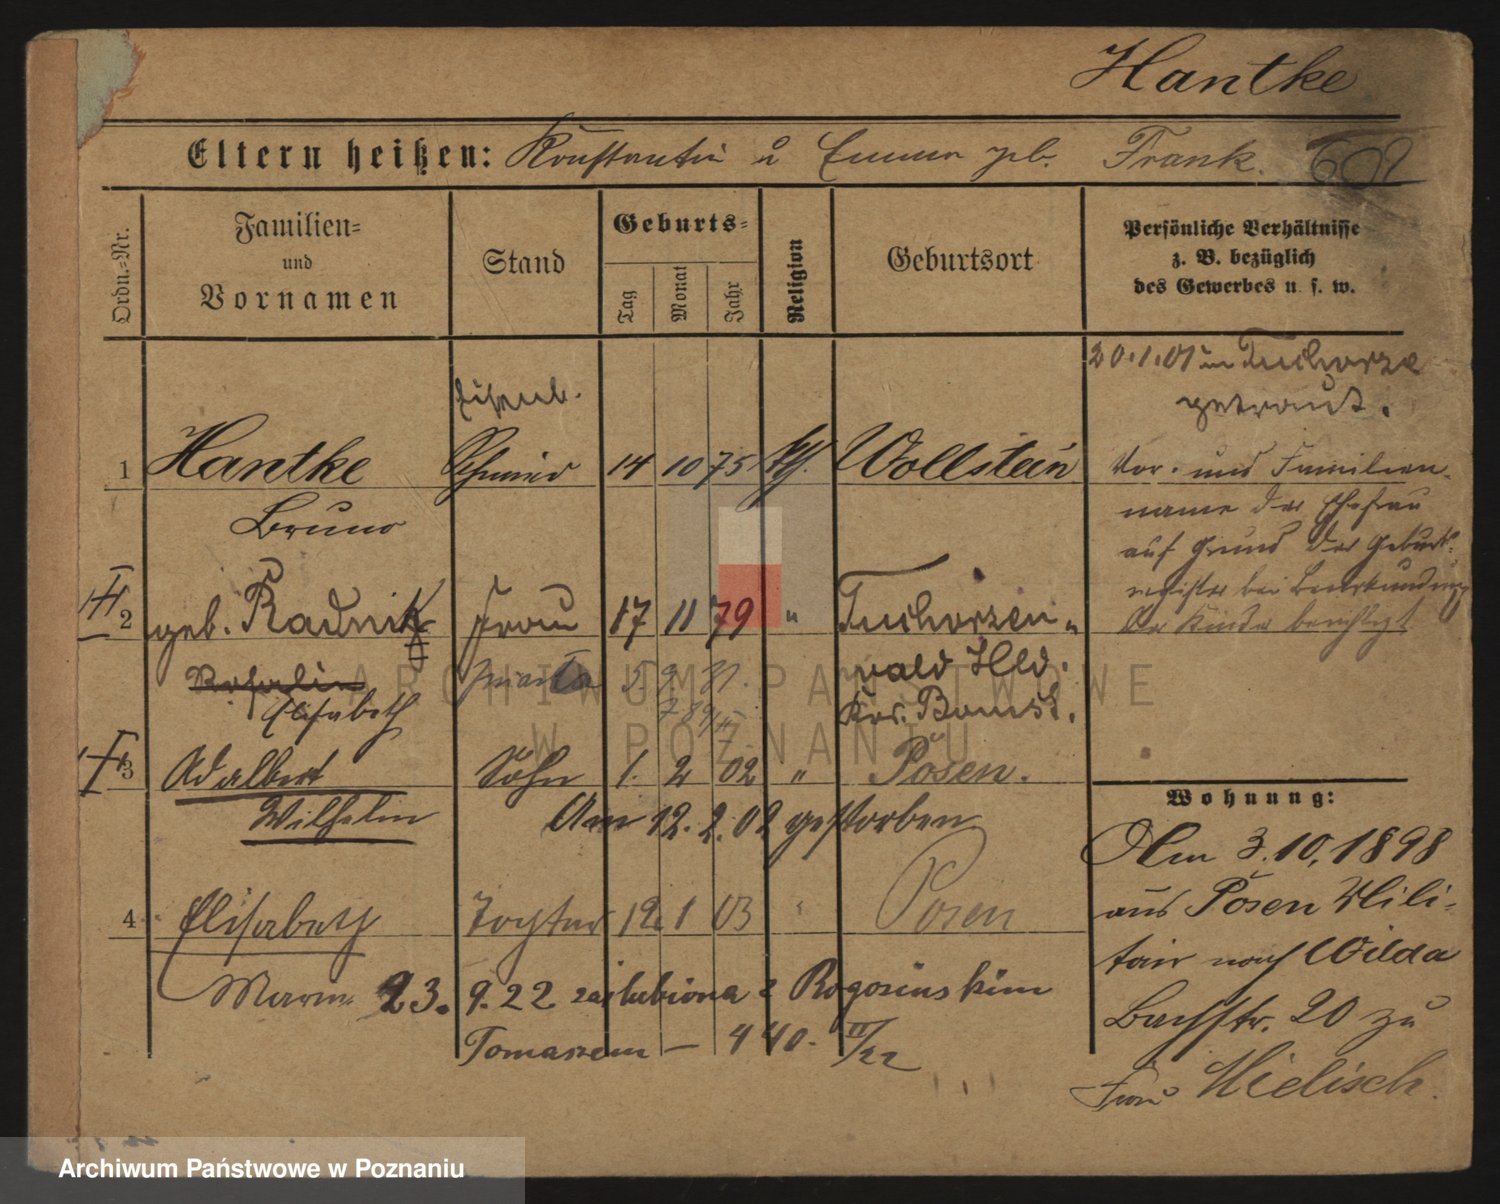 Hantke
Eltern heißen: Konstantin u Emma geb. Frank. 602
Ordn.-Nr.
Familien-
und
Vornamen
Stand
Geburts-
Tag
Monat
Jahr
Religion
Geburtsort
Persönliche Verhältnisse
z. B. bezüglich
des Gewerbes u. s. w.
20.1.01 in Tuchorze
getraut.
Eisenb.
1 Hantke Schmied 14 10 75 Wollstein
Bruno
Vor- und Familien-
name der Ehefrau
auf Grund der Geburts-
register bei Beurkundung
der Kinder berichtigt
2 geb. Radnik Frau 17 11 79 " Tuchorzen-
Rosalin
Elisabeth
wald Hld.
Kr. Bomst.
3 Adalbert Sohn 1. 2 02 " Posen.
Wilhelm
Am 12. 2. 02 gestorben
4 Elisabeth Tochter 12. 1 03 Posen
Marie 23. 9. 22 zaślubiona z Rogozińskim
Tomaszem — 440. II/22
Wohnung:
Am 3.10.1898
aus Posen Mili-
tair nach Wilda
Bachstr. 20 zu
Frau Mielisch.
ARCHIWUM PAŃSTWOWE
W POZNANIU
Archiwum Państwowe w Poznaniu